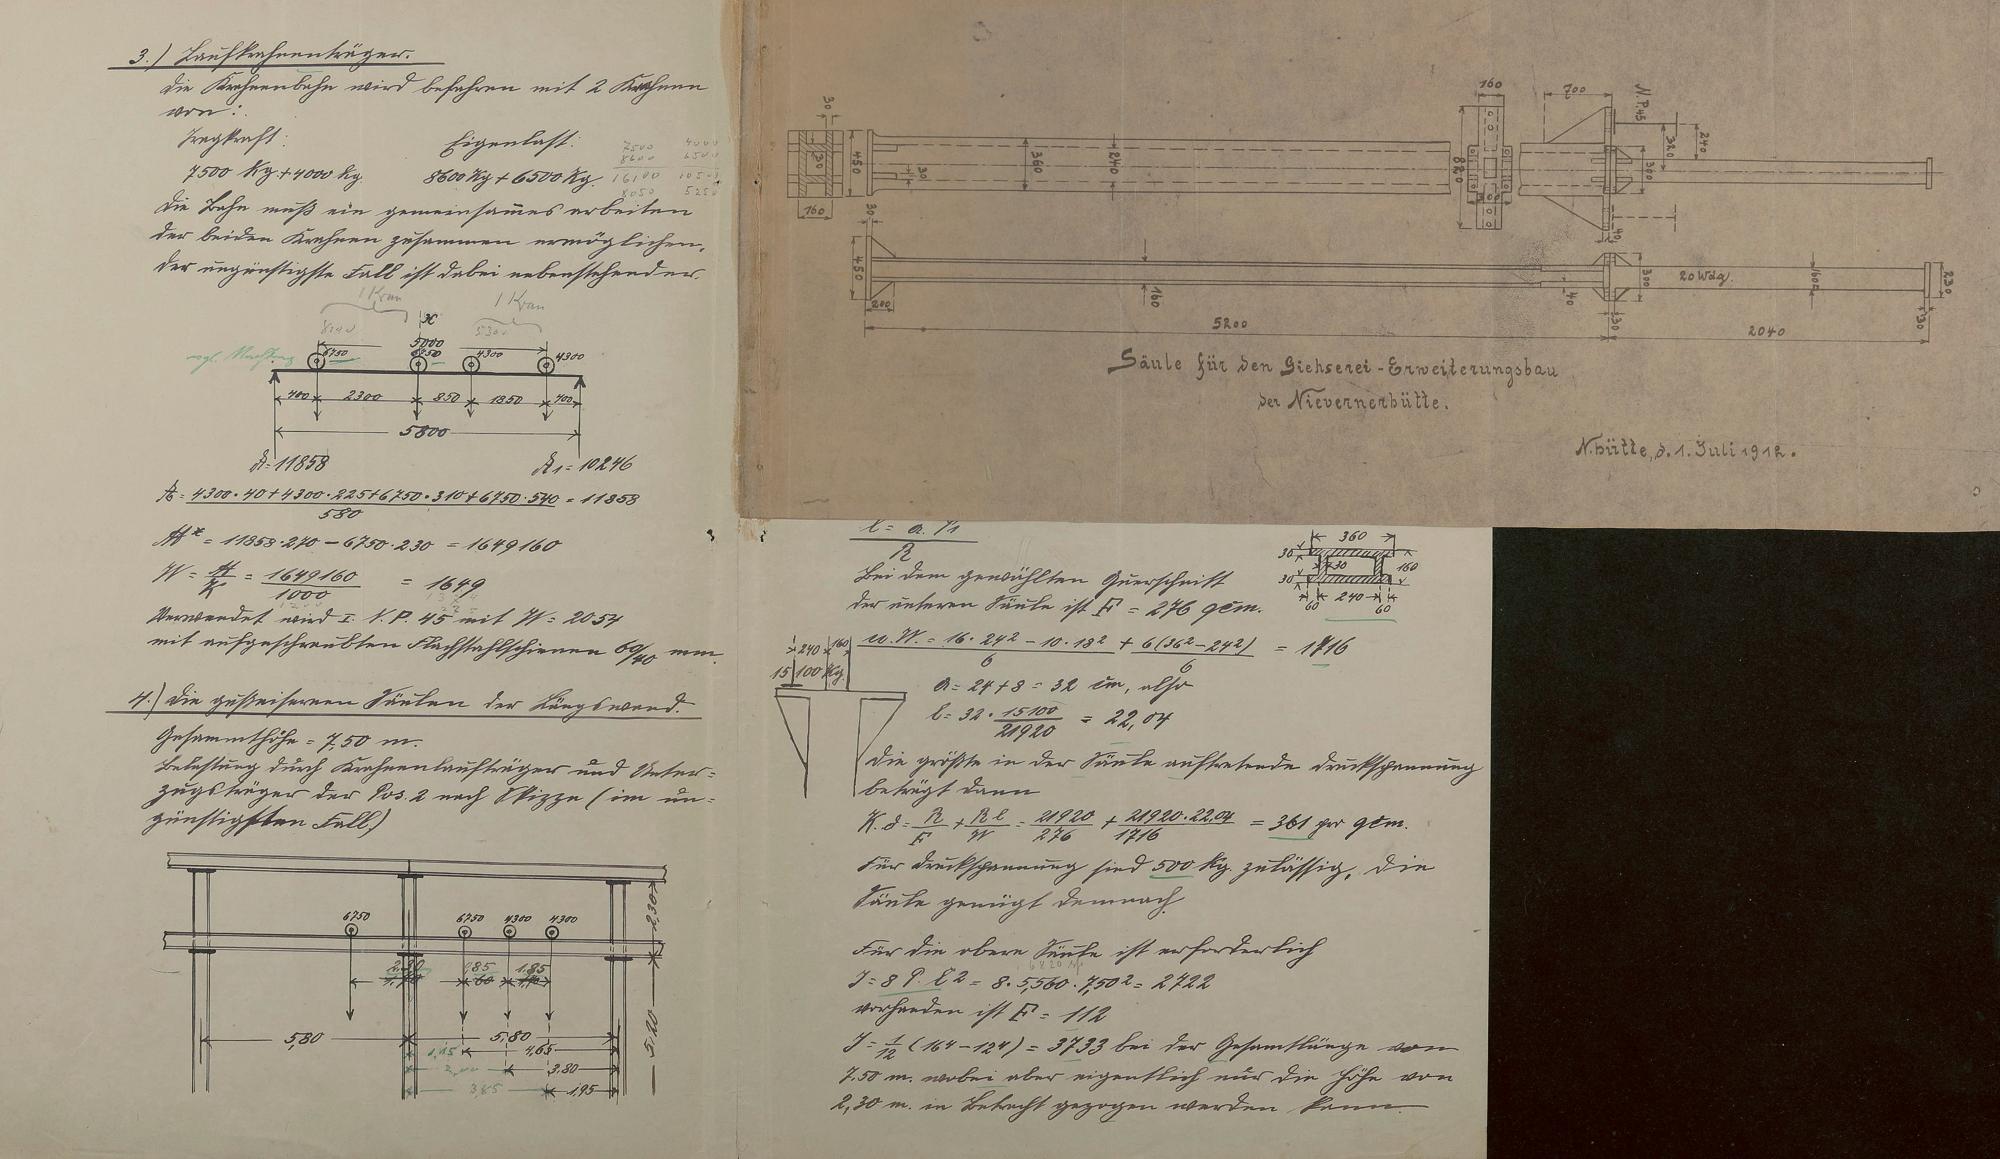 3.) Laufkrahnenträger.
Die Krahnenbahn wird befahren mit 2 Krahnen
von:
Tragkraft: Eigenlast:
7500 Kg + 4000 Kg. 8600 Kg + 6500 Kg.
7500 4000
8600 6500
16100 1050
8050 525
Die Bahn muß ein gemeinsames arbeiten
der beiden Krahnen zusammen ermöglichen,
der ungünstigste Fall ist dabei nebenstehender.
1 Kran 1 Kran
5300
x
5000
vgl.
6750 6750 4300 4300
400 2300 850 1850 400
5800
A = 11858 A1 = 10246
A = 4300·40+4300·225+6750·310+6750·540 = 11858
580
Mx = 11858·270 – 6750·230 = 1649160
W = M/K = 1649160/1000 = 1649
Verwendet wird I N.P. 45 mit W = 2054
mit aufgeschraubten Flachstahlschienen 60/40 mm.
4.) Die gußeisernen Säulen der Längswand.
Gesammthöhe = 7,50 m.
Belastung durch Krahnenlaufträger und Unter=
zugsträger der Pos. 2 nach Skizze (im un=
günstigsten Fall)
6750 6750 4300 4300
2,30
2,30 85 1,85
5,80 5,80
1,15 4,65
2,00 3,80
3,85 1,95
5,20
30 160 N.P.45 700
240
320
30 450 30 360 240 820 300
160 30 40
450 200 160 40 300 20 Wdg. 160 230
30 30
5200 2040
Säule für den Giehserei-Erweiterungsbau
der Nievernerhütte.
N.hütte, d. 1. Juli 1912.
l = a. P1
R
360
30 30 160
30
60 240 60
Bei dem gewählten Querschnitt
der unteren Säule ist F = 276 qcm.
u. W. = 16·24² – 10·18² / 6 + 6(36² – 24²) / 6 = 1716
240 160
15100 Kg.
a = 24 + 8 = 32 cm, also
l = 32 · 15100/21920 = 22,04
Die größte in der Säule auftretende Druckspannung
beträgt dann
K.d = R/F + R l/W = 21920/276 + 21920·22,04/1716 = 361 pro qcm.
Für Druckspannung sind 500 Kg. zulässig, die
Säule genügt demnach
Für die obere Säule ist erforderlich
J = 8 P. l² = 8·5,560·7,50² = 2722
vorhanden ist F = 112
J = 1/12 (16⁴ – 12⁴) = 3733 bei der Gesamtlänge von
7.50 m. wobei aber eigentlich nur die Höhe von
2,30 m. in Betracht gezogen werden kann